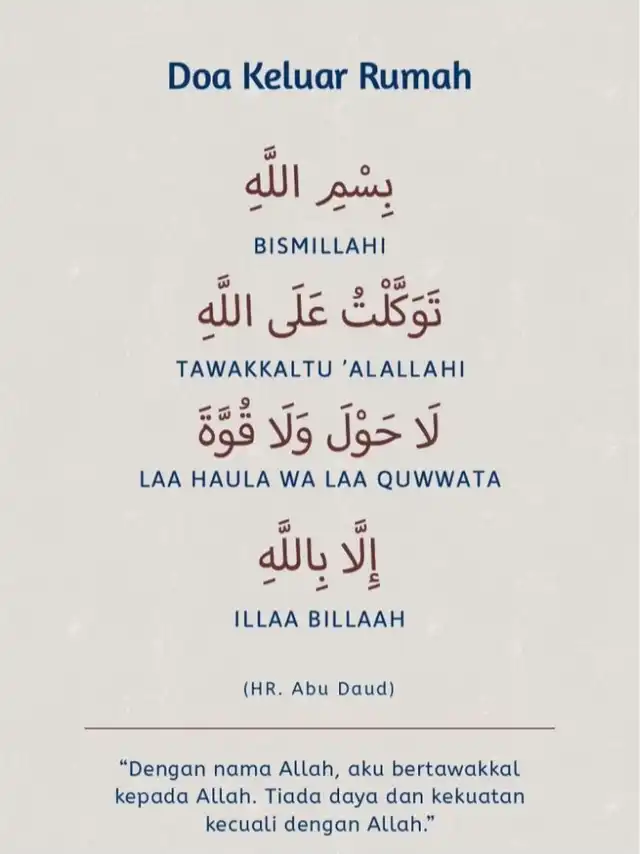 Doa Keluar Rumah
بِسْمِ اللَّهِ
BISMILLAHI
تَوَكَّلْتُ عَلَى اللَّهِ
TAWAKKALTU ’ALALLAHI
لَا حَوْلَ وَلَا قُوَّةَ
LAA HAULA WA LAA QUWWATA
إِلَّا بِاللَّهِ
ILLAA BILLAAH
(HR. Abu Daud)
“Dengan nama Allah, aku bertawakkal
kepada Allah. Tiada daya dan kekuatan
kecuali dengan Allah.”